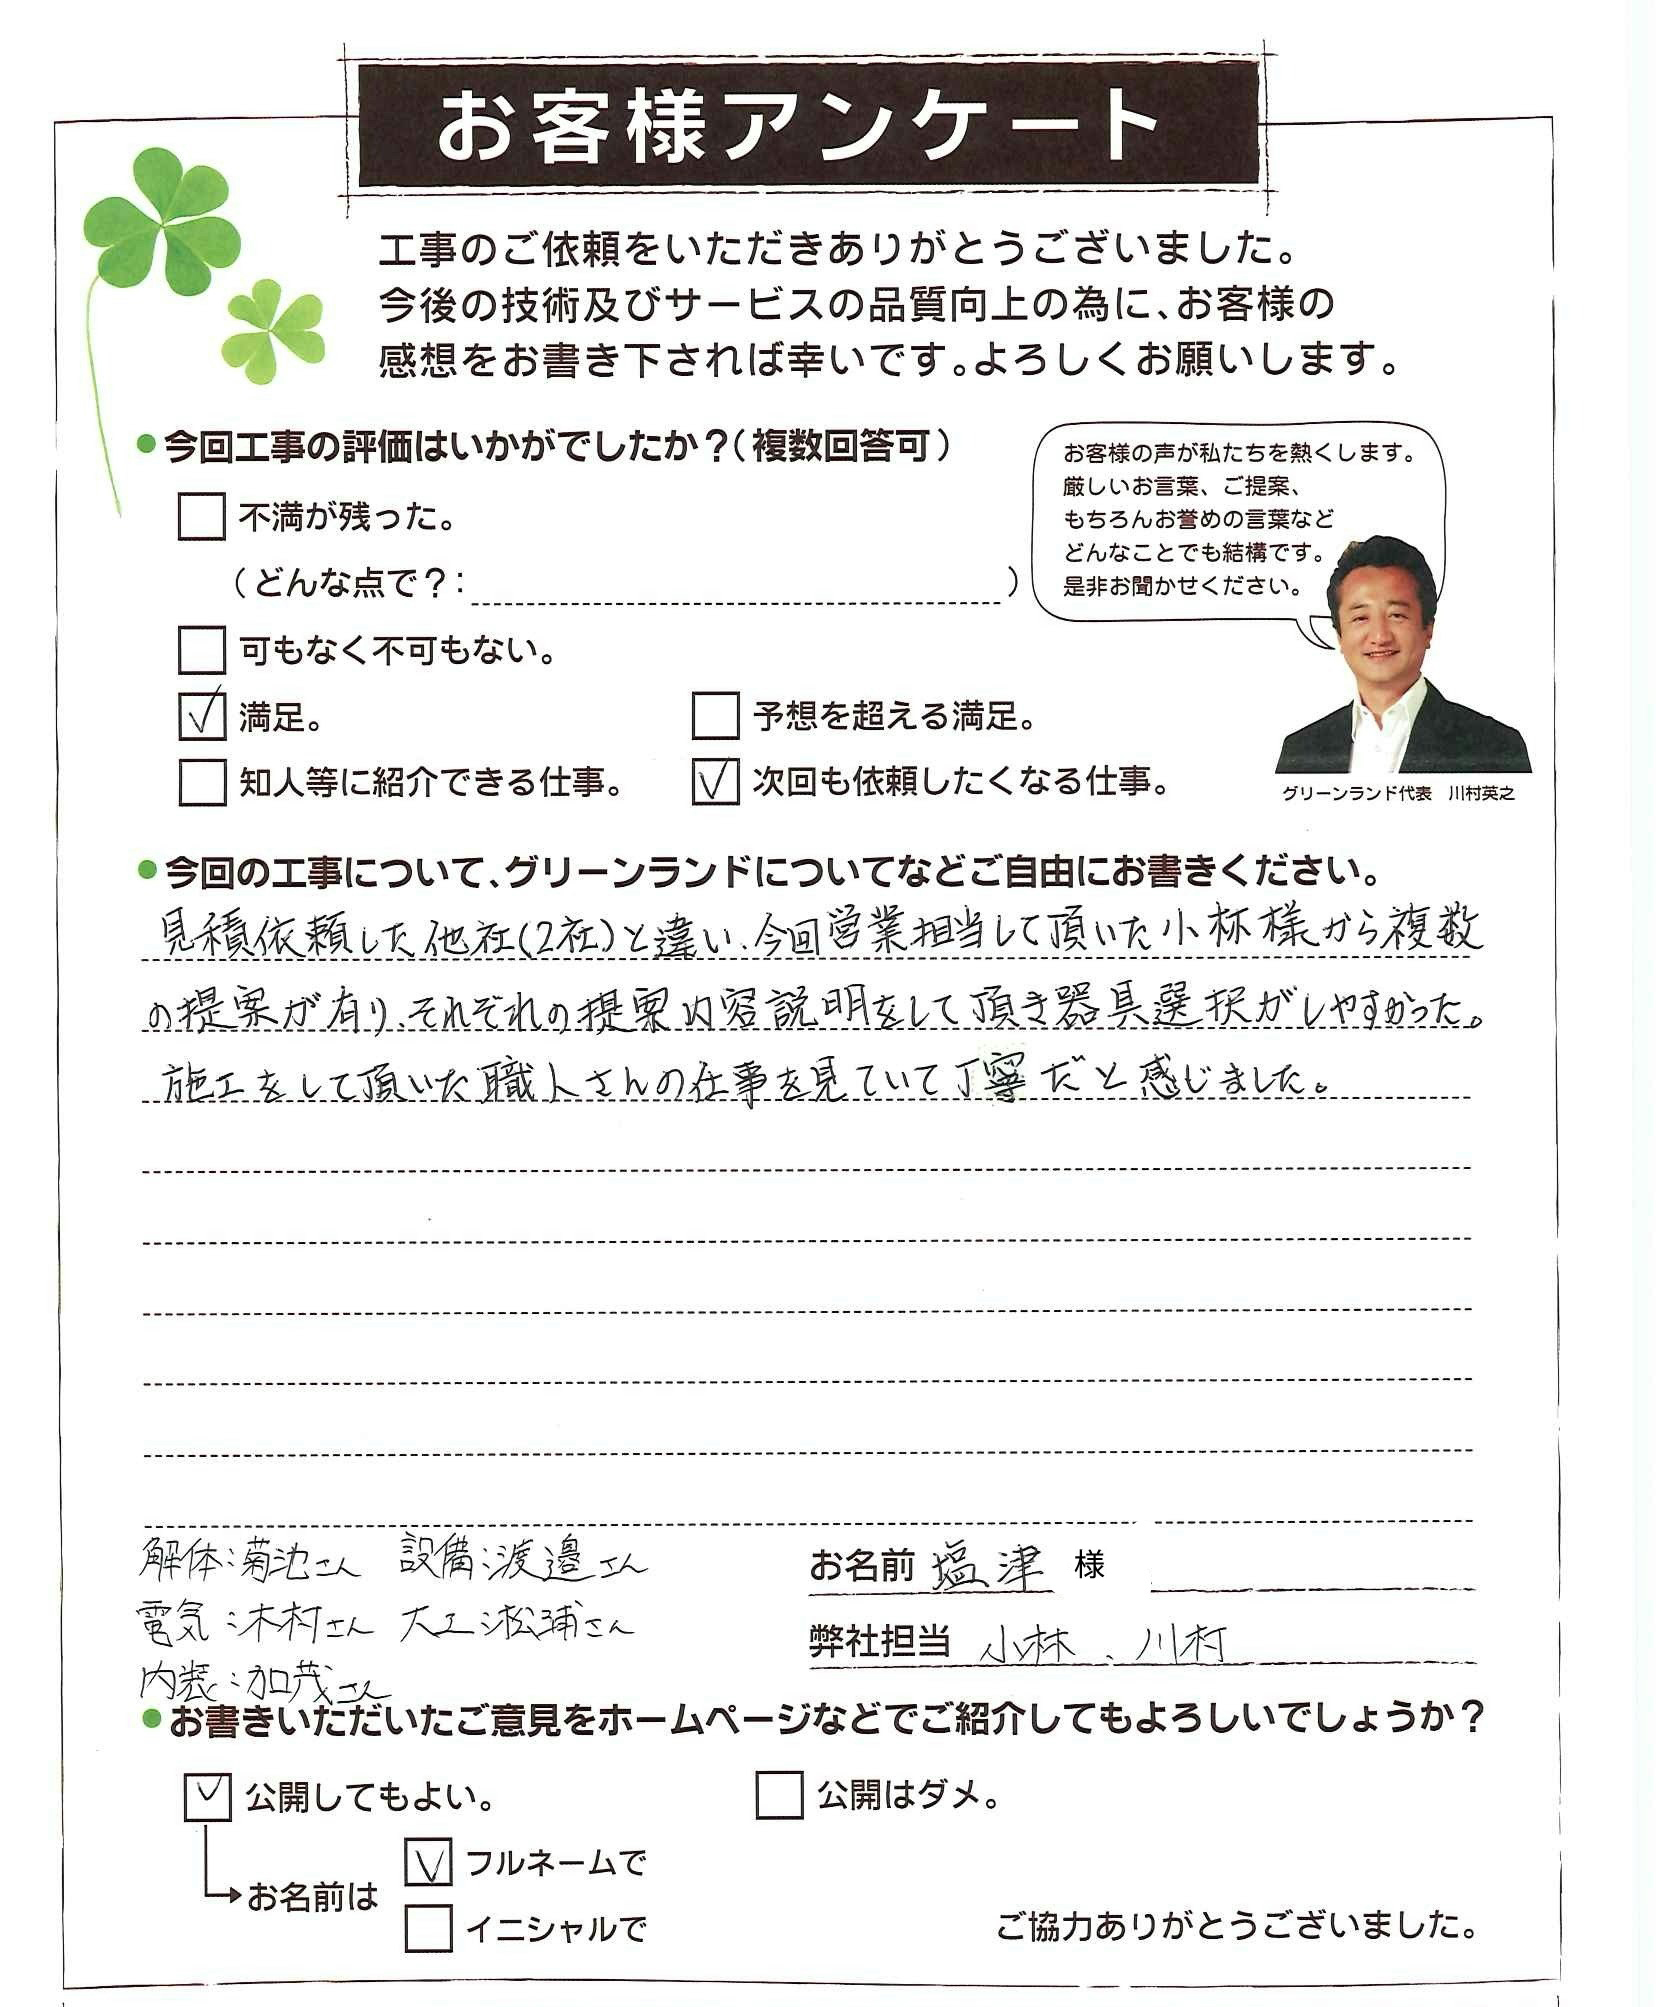 お客様アンケート
工事のご依頼をいただきありがとうございました。
今後の技術及びサービスの品質向上の為に、お客様の
感想をお書き下されば幸いです。よろしくお願いします。
●今回工事の評価はいかがでしたか？（複数回答可）
お客様の声が私たちを熱くします。
厳しいお言葉、ご提案、
もちろんお誉めの言葉など
どんなことでも結構です。
是非お聞かせください。
□ 不満が残った。
（どんな点で？：　）
□ 可もなく不可もない。
☑ 満足。
□ 予想を超える満足。
□ 知人等に紹介できる仕事。
☑ 次回も依頼したくなる仕事。
グリーンランド代表　川村英之
●今回の工事について、グリーンランドについてなどご自由にお書きください。
見積依頼した他社(2社)と違い、今回営業担当して頂いた小林様から複数
の提案が有り、それぞれの提案内容説明をして頂き器具選択がしやすかった。
施工をして頂いた職人さんの仕事を見ていて丁寧だと感じました。
解体：菊池さん　設備：渡邉さん
電気：木村さん　大工：松浦さん
内装：加茂さん
お名前 塩津 様
弊社担当 小林、川村
●お書きいただいたご意見をホームページなどでご紹介してもよろしいでしょうか？
☑ 公開してもよい。
□ 公開はダメ。
お名前は
☑ フルネームで
□ イニシャルで
ご協力ありがとうございました。